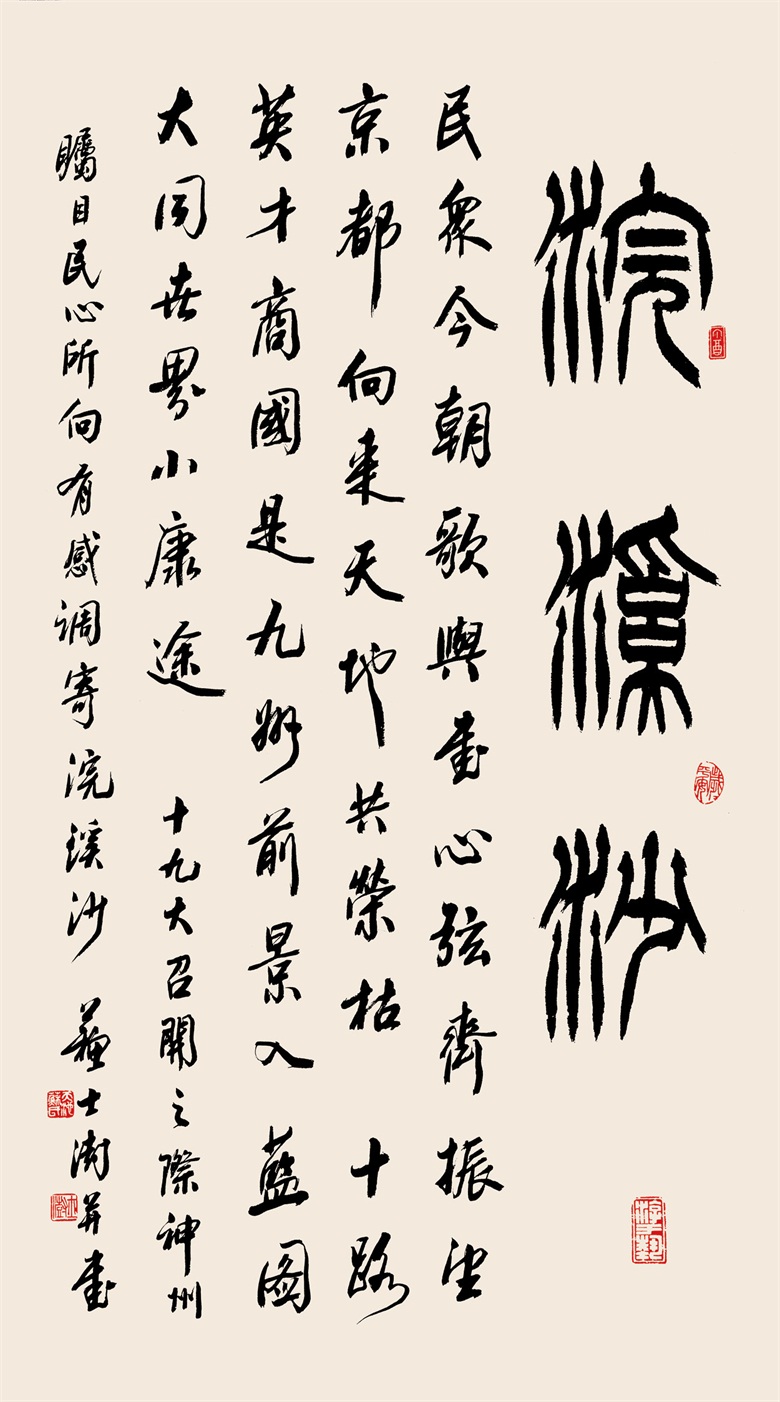 浣溪沙
民衆今朝歌與畫心弦齊振望
京都向來天地共榮枯十路
英才商國是九州前景入藍圖
大同世界小康途 十九大召開之際神州
矚目民心所向有感调寄浣溪沙 蘇士澍并書